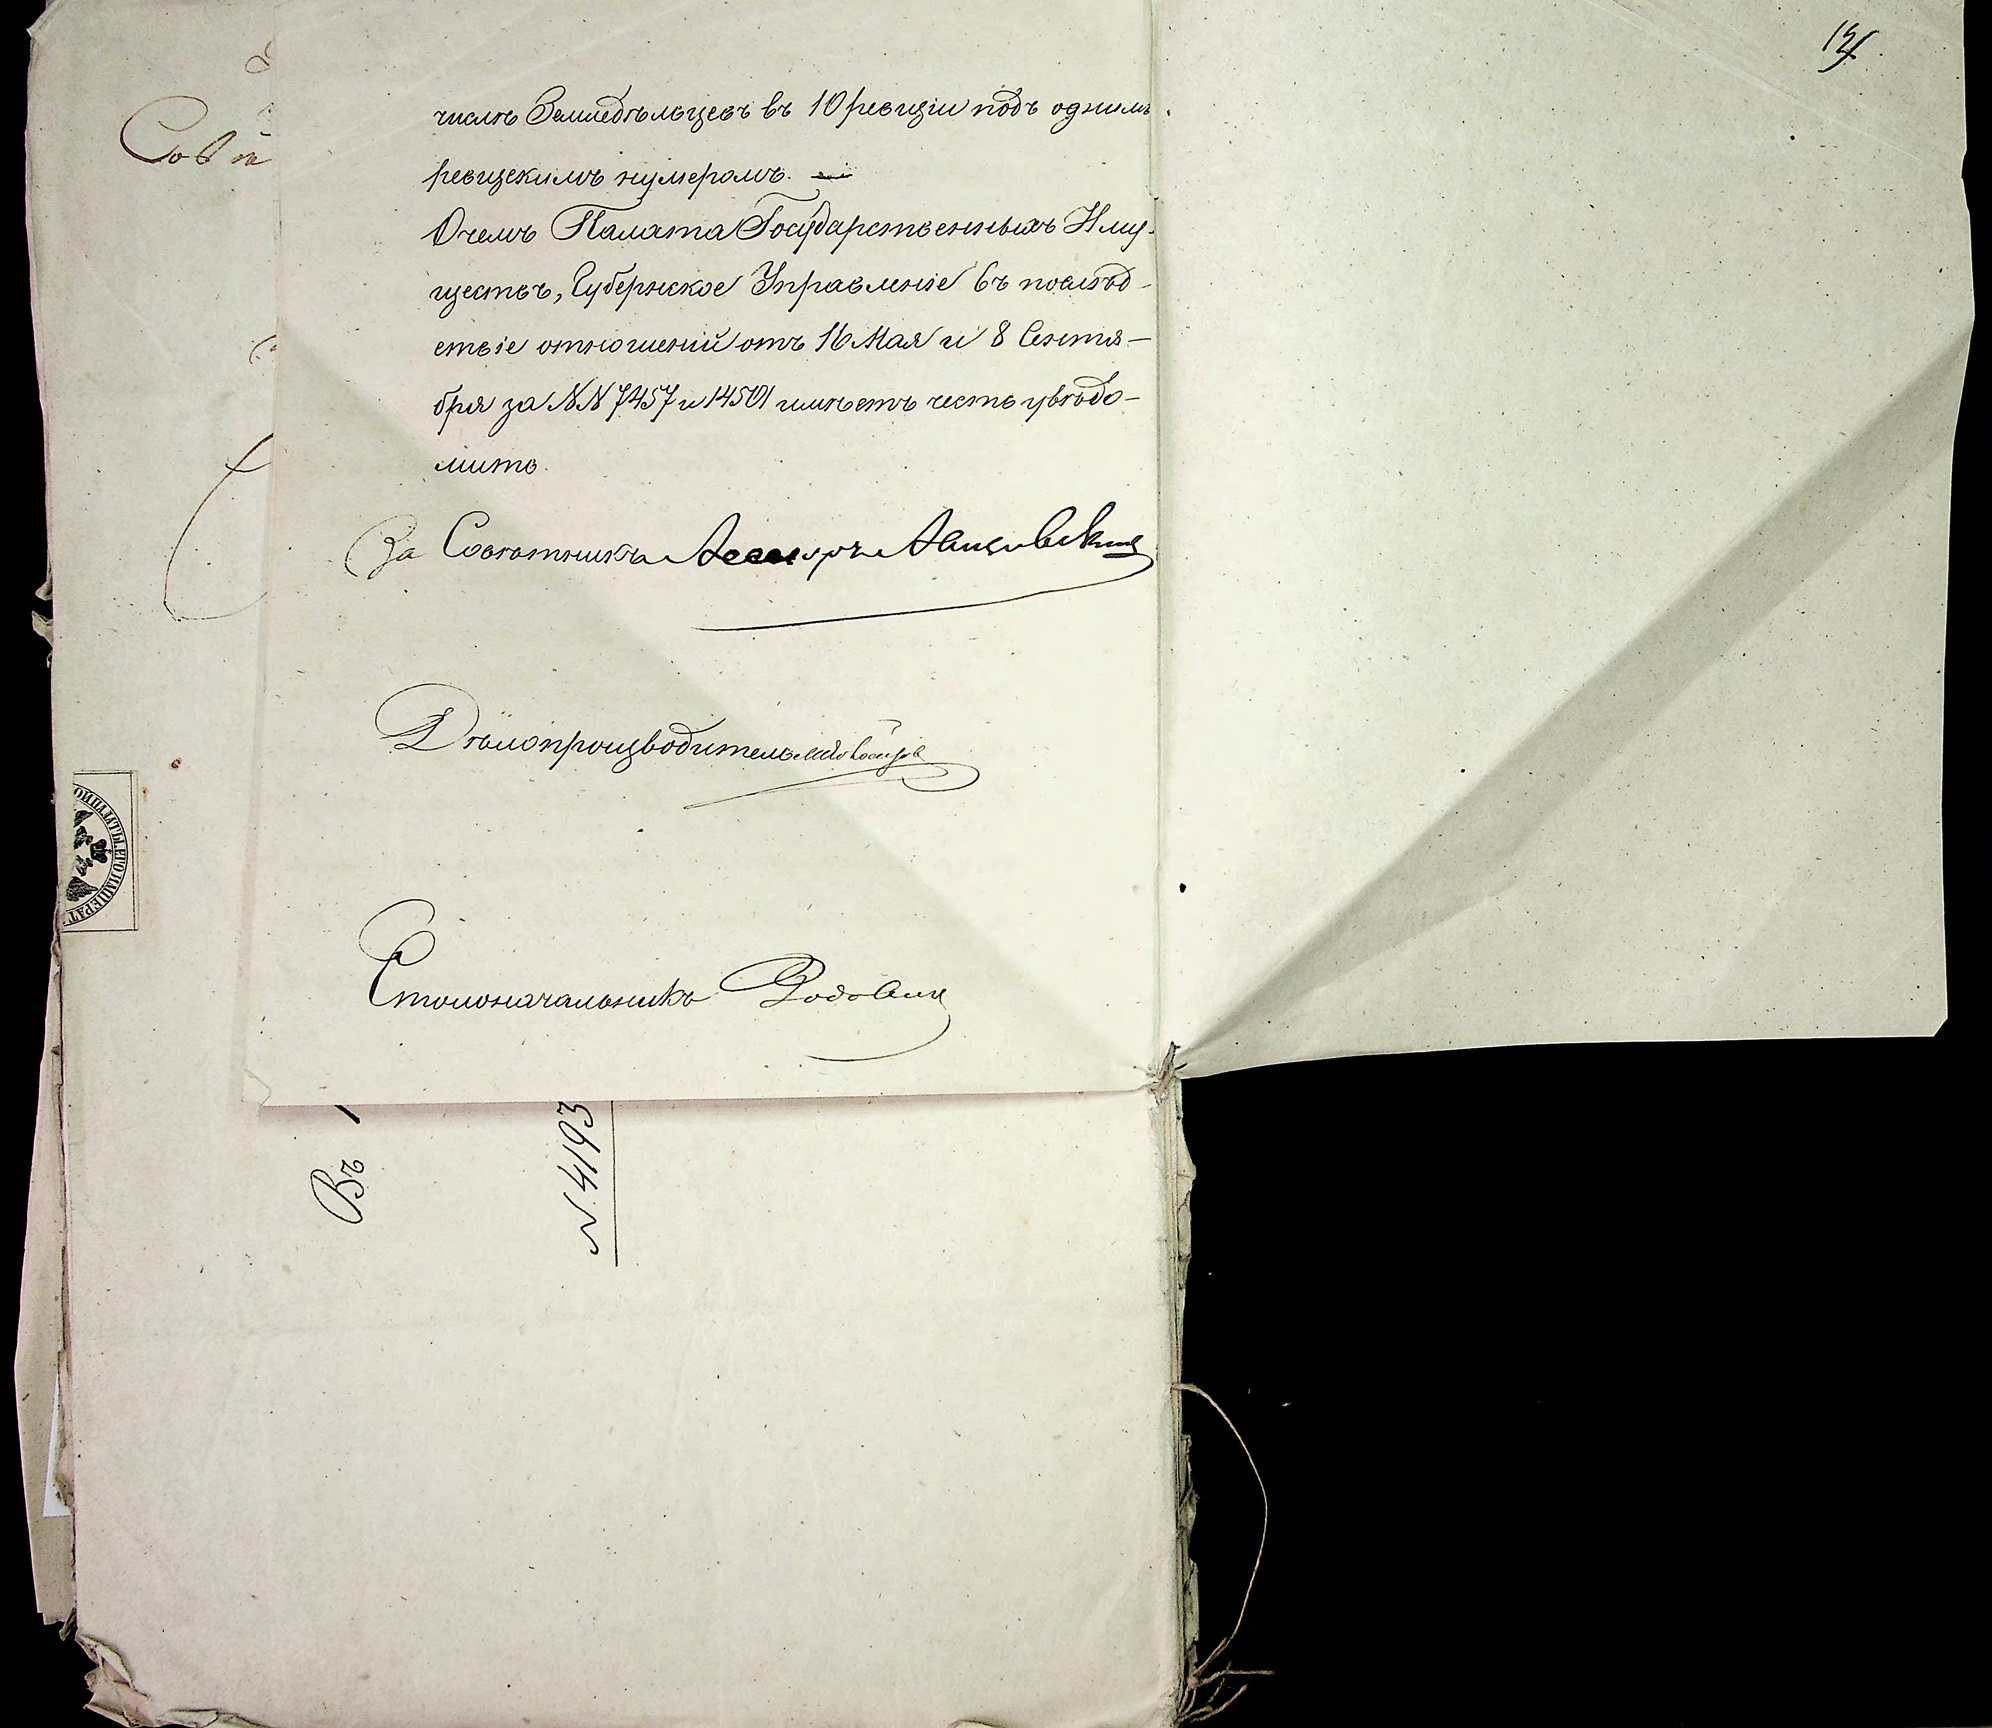 числѣ Земледѣльцевъ въ 10 ревизіи подъ однимъ
ревизскимъ нумеромъ.
О чемъ Палата Государственныхъ Иму-
ществъ, Губернское Управленіе въ послѣд-
ствіе отношеній отъ 16 Мая и 8 Сентя-
бря за NN 7457 и 14501 имѣетъ честь увѣдо-
мить.
За Совѣтника Ассесоръ
Дѣлопроизводитель
Столоначальникъ
Въ
N. 4193